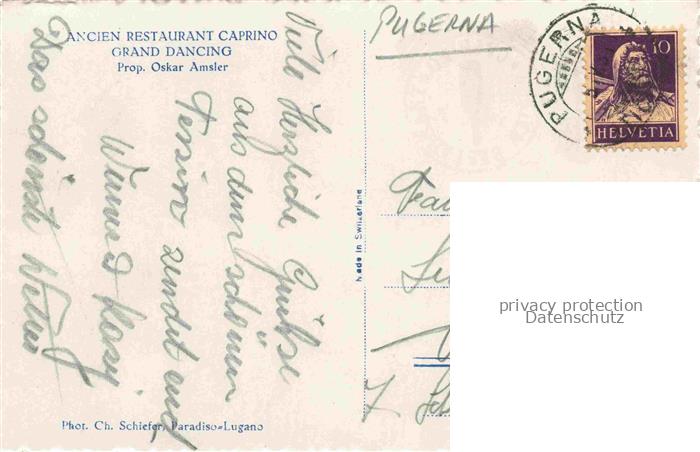 ANCIEN RESTAURANT CAPRINO
GRAND DANCING
Prop. Oskar Amsler
Viele Herzliche Grüsse
aus dem schönen
Tessin sendet euch
Werner & Rosy
Das schönste Wetter
Phot. Ch. Schiefer, Paradiso-Lugano
Made in Switzerland
PUGERNA
PUGERNA
10
HELVETIA
privacy protection
Datenschutz